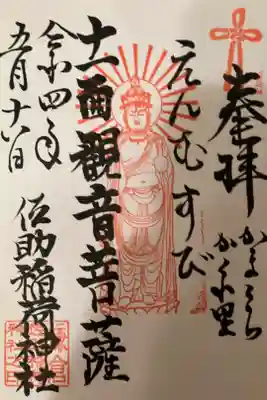 奉拝
かまくら
かくれ里
えんむすび
十一面観音菩薩
令和四年
五月十六日
佐助稲荷神社